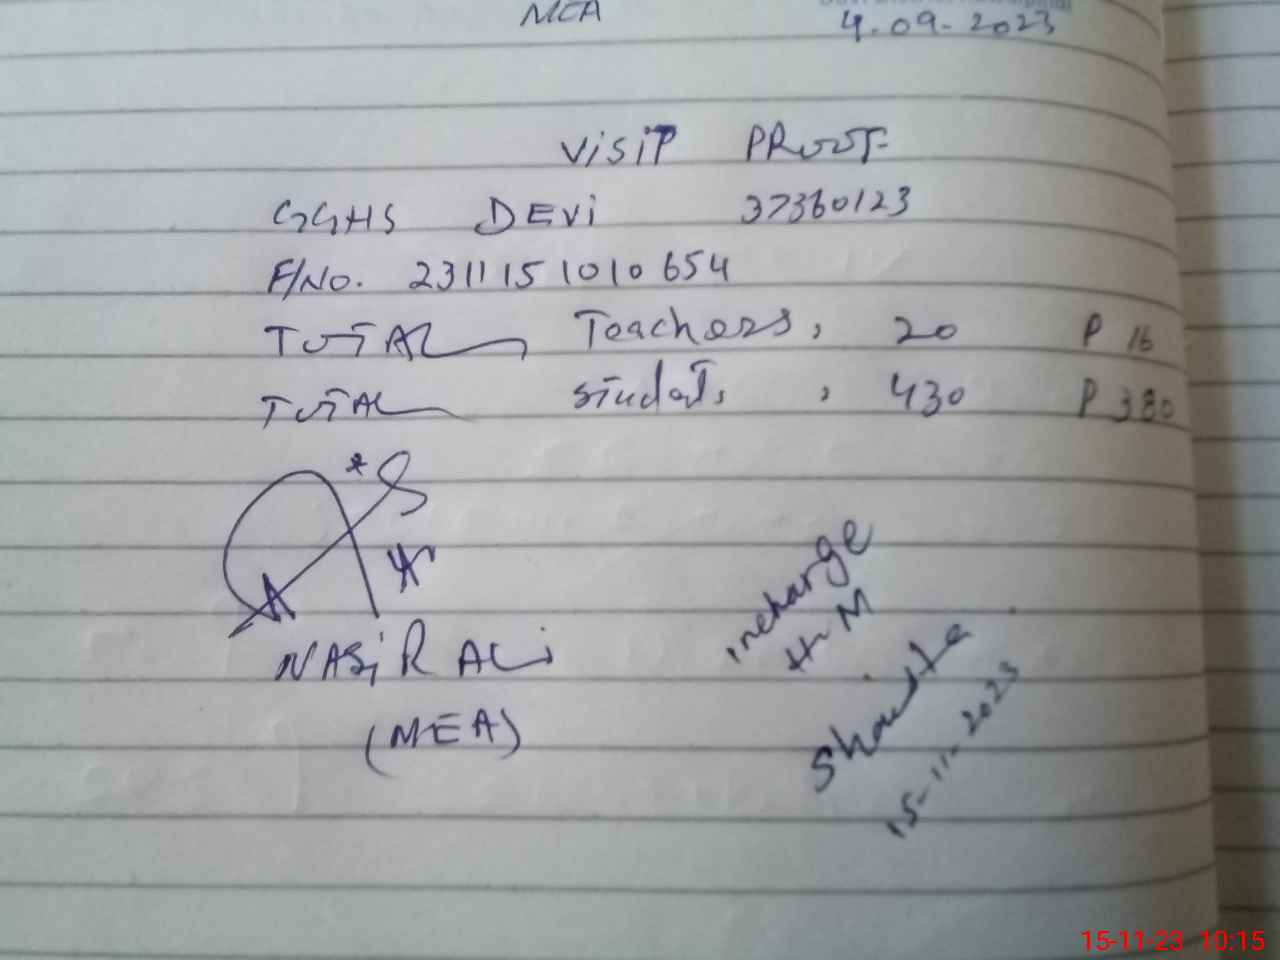 MEA
4.09-2023
VISIT PROOF
GGHS DEVi 37360123
F/No. 2311151010654
TOTAL Teachers, 20 P 16
TOTAL Students, 430 P 380
NASiR ALi
(MEA)
incharge
H M
15-11-2023
15-11-23 10:15